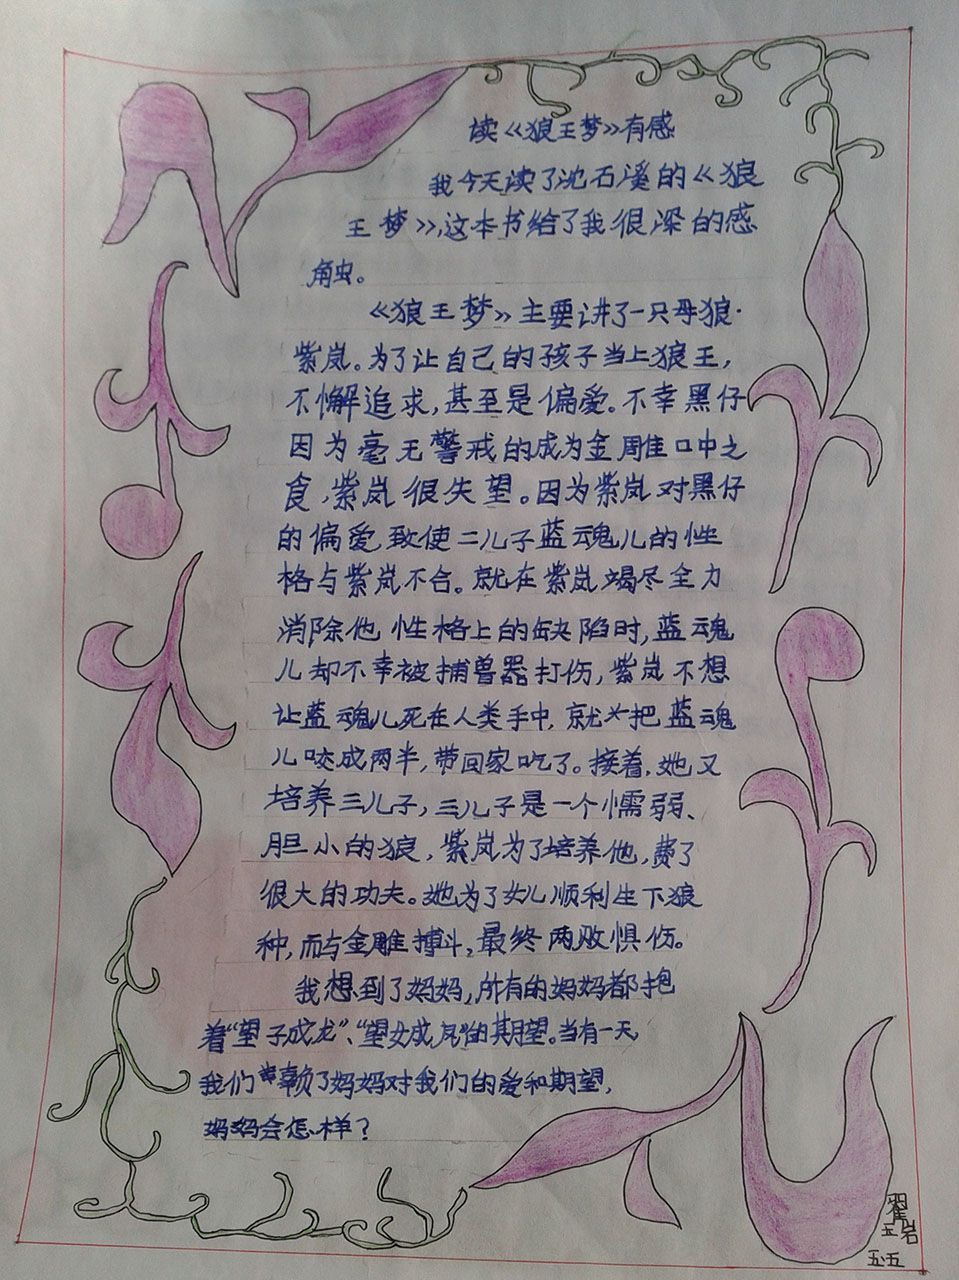 读《狼王梦》有感
我今天读了沈石溪的《狼
王梦》,这本书给了我很深的感
触。
《狼王梦》主要讲了一只母狼·
紫岚。为了让自己的孩子当上狼王,
不懈追求,甚至是偏爱。不幸黑仔
因为毫无警戒的成为金雕口中之
食,紫岚很失望。因为紫岚对黑仔
的偏爱致使二儿子蓝魂儿的性
格与紫岚不合。就在紫岚竭尽全力
消除他性格上的缺陷时,蓝魂
儿却不幸被捕兽器打伤,紫岚不想
让蓝魂儿死在人类手中,就把蓝魂
儿咬成两半,带回家吃了。接着,她又
培养三儿子,三儿子是一个懦弱、
胆小的狼,紫岚为了培养他,费了
很大的功夫。她为了女儿顺利生下狼
种,而与金雕搏斗,最终两败惧伤。
我想到了妈妈,所有的妈妈都抱
着“望子成龙”、“望女成凤”的期望。当有一天
我们辜负了妈妈对我们的爱和期望,
妈妈会怎样?
翟
岩
五·五